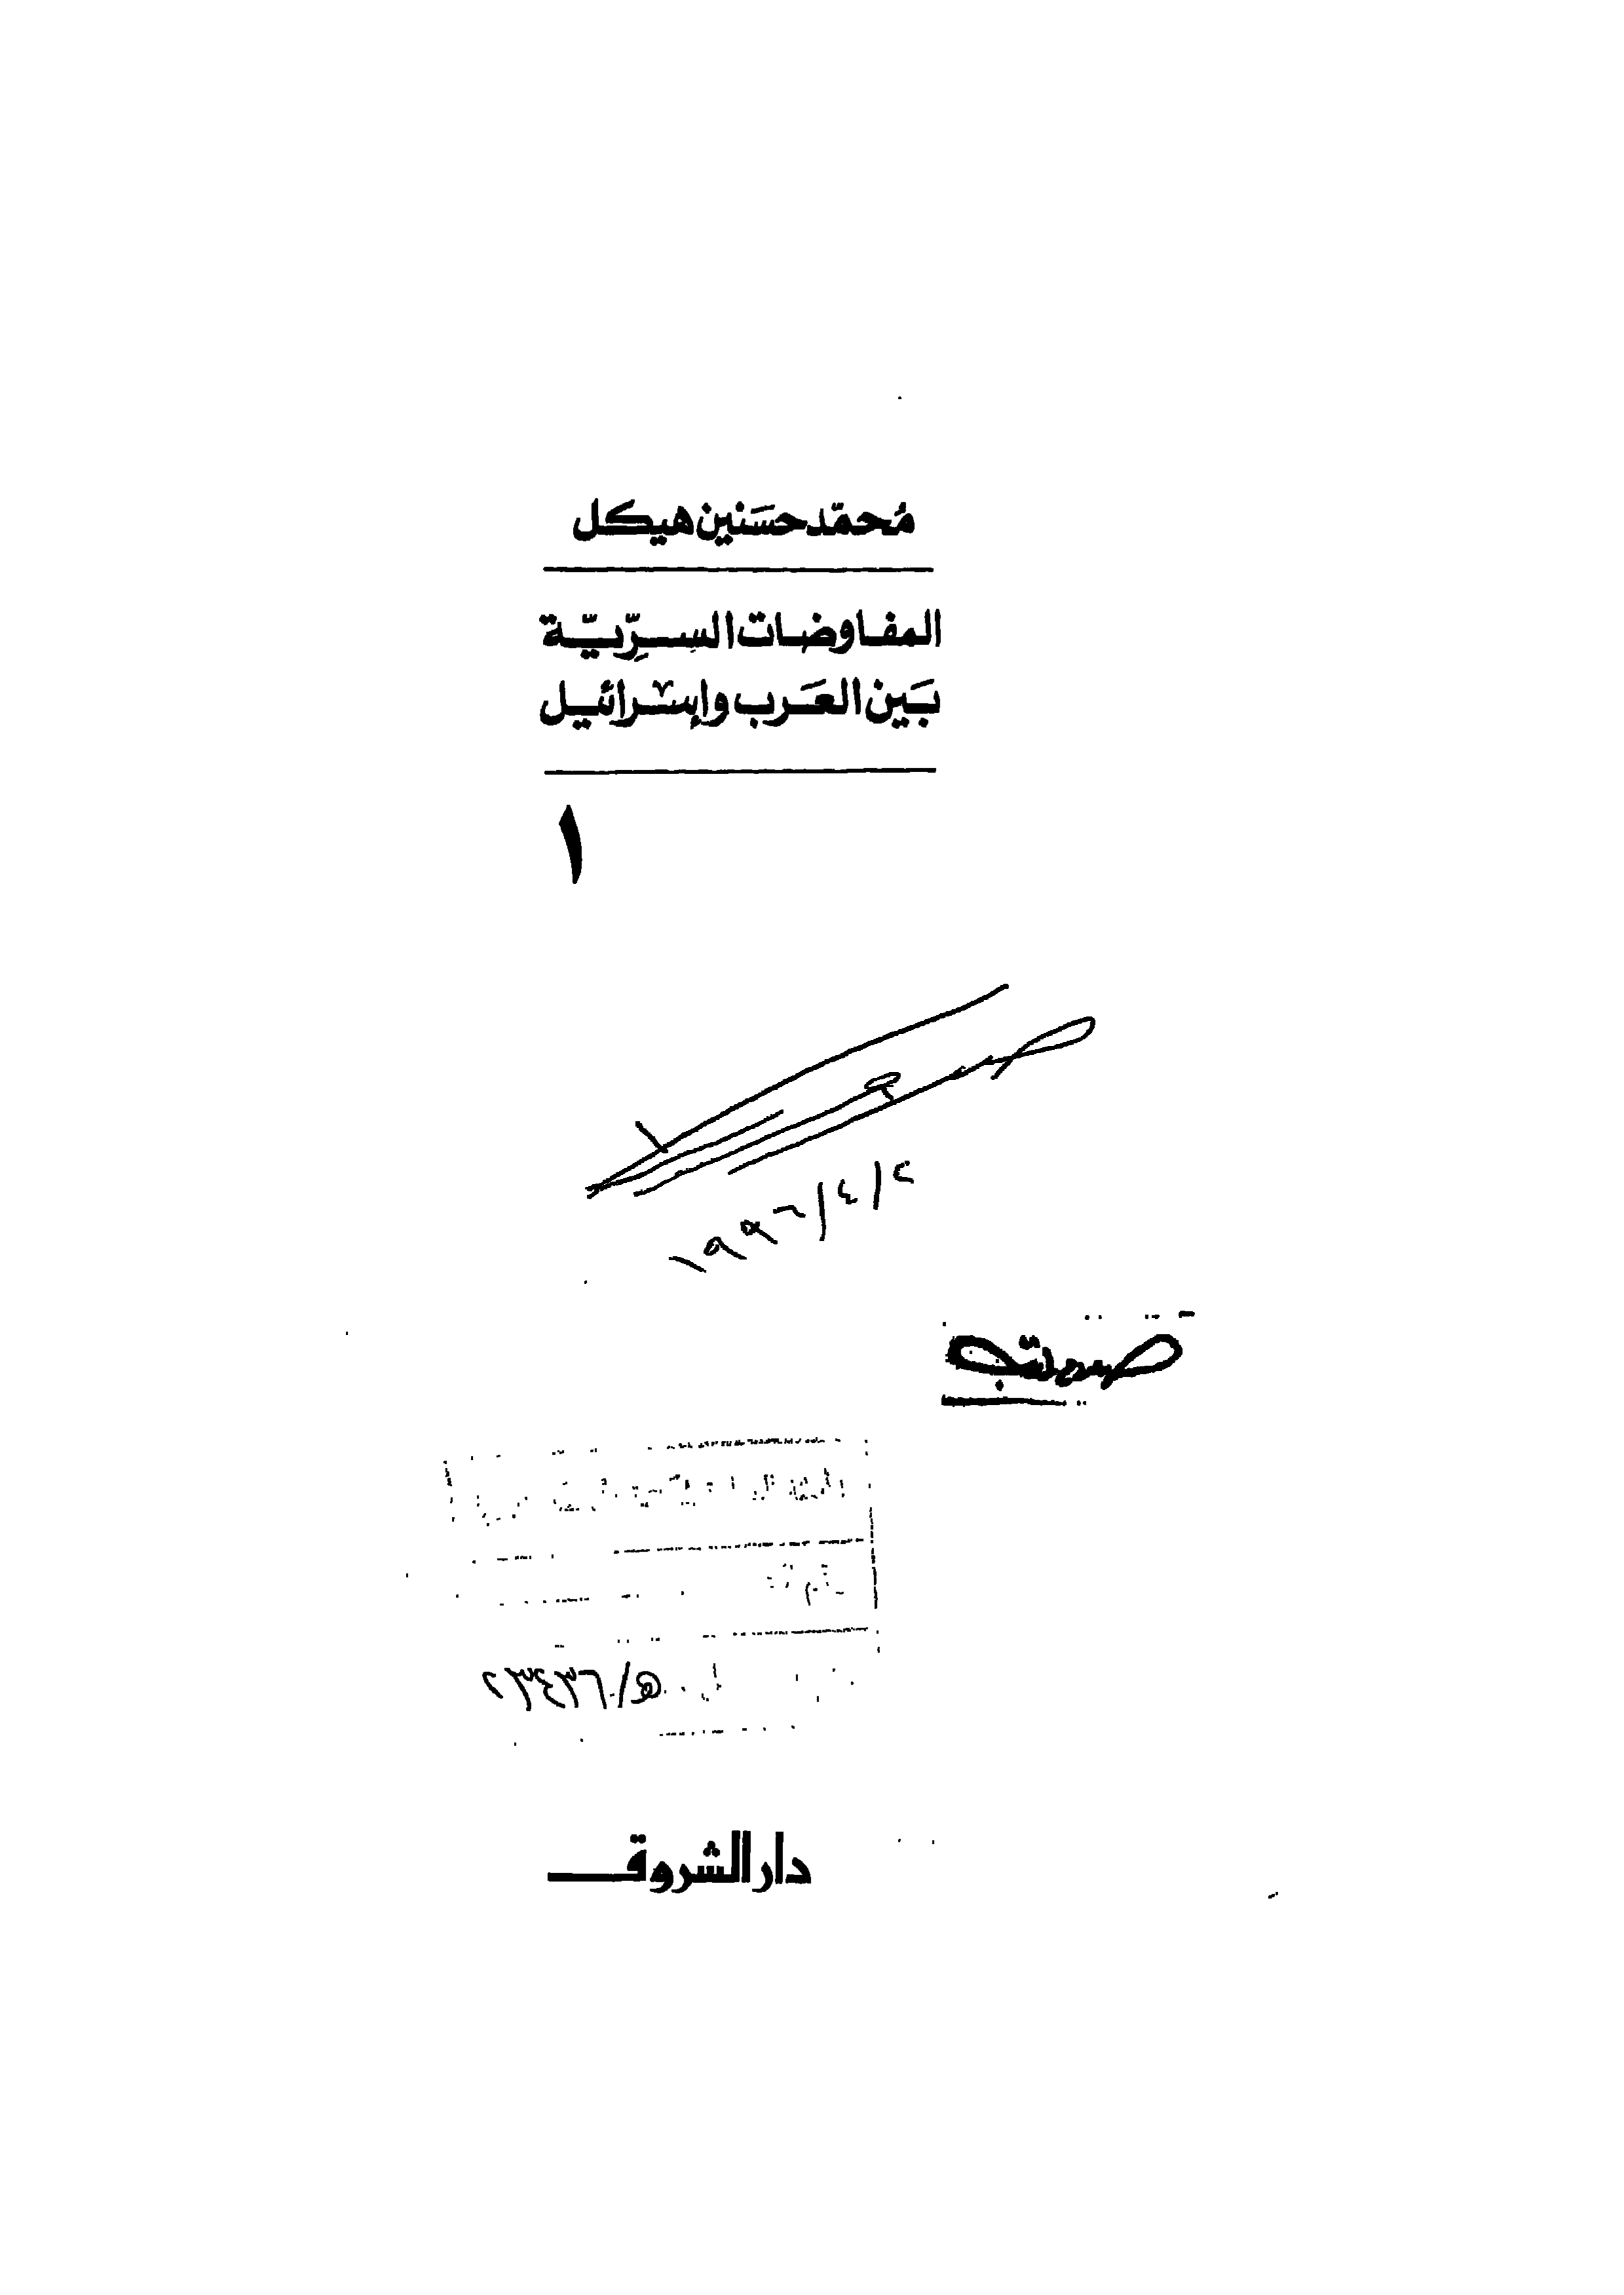 مُحمّد حسَنين هيكل
المفاوضات السِرِّيّة
بَين العَرَب وإسْرائيل
١
١٩٩٦/٤/٢
ه/٢٣٤٣٦
دار الشروق